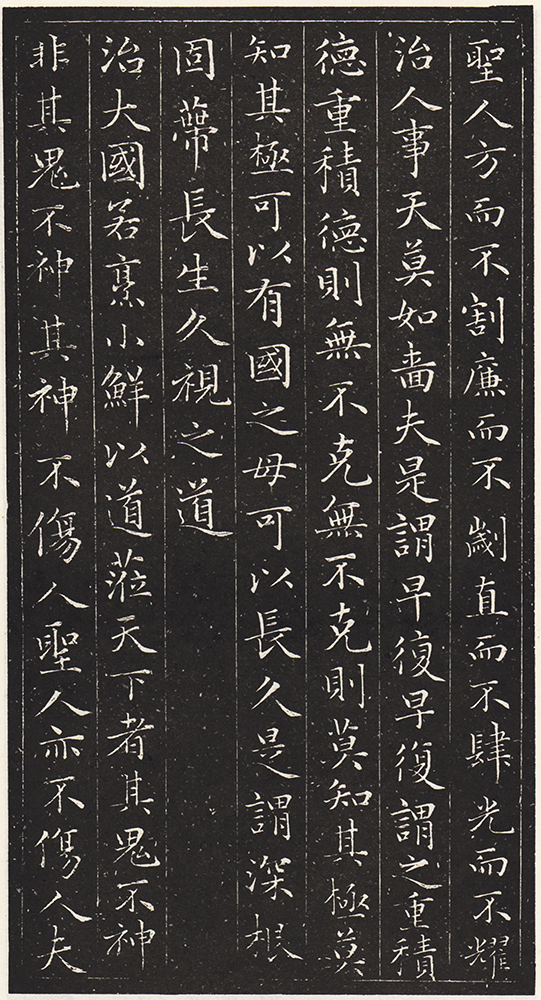 聖人方而不割廉而不劌直而不肆光而不耀
治人事天莫如嗇夫是謂早復早復謂之重積
德重積德則無不克無不克則莫知其極莫
知其極可以有國之母可以長久是謂深根
固蔕長生久視之道
治大國若烹小鮮以道蒞天下者其鬼不神
非其鬼不神其神不傷人聖人亦不傷人夫